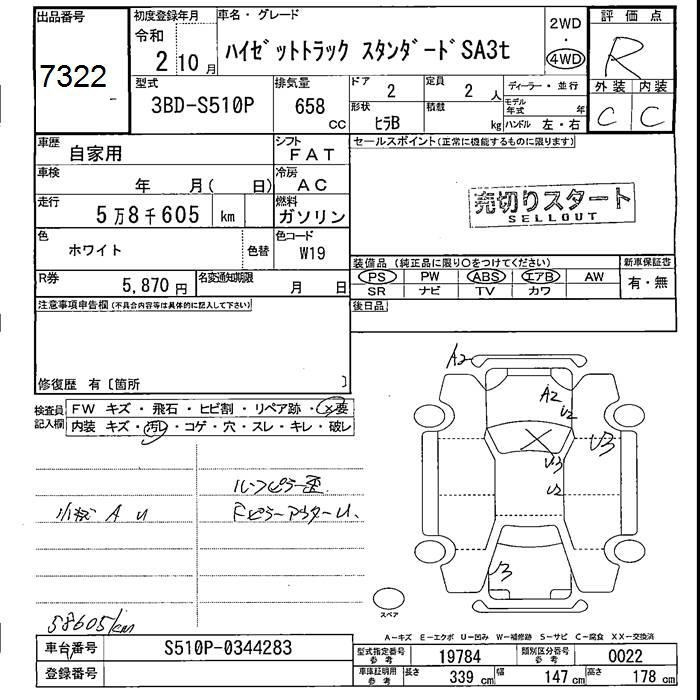 出品番号
7322
初度登録年月
令和
2 10 月
車名・グレード
ハイゼットトラック スタンダードSA3t
2WD
・
4WD
評価点
R
外装 内装
C C
型式
3BD-S510P
排気量
658
CC
ドア
2
定員
2 人
ディーラー・並行
形状
ﾋﾗB
積載
kg
モデル年式
年
ハンドル 左・右
車歴
自家用
シフト
FAT
セールスポイント(正常に機能するものに限ります)
車検
年 月( 日)
冷房
AC
走行
5万8千605 km
燃料
ガソリン
売切りスタート
SELLOUT
色
ホワイト
色替
色コード
W19
装備品 (純正品に限り〇をつけてください)
新車保証書
PS PW ABS エアB AW
SR ナビ TV カワ
有・無
R券
5,870 円
名変通知期限
月 日
後日品
注意事項申告欄(不具合内容等は具体的に記入して下さい)
修復歴 有〔箇所 〕
検査員記入欄
FW キズ・飛石・ヒビ割・リペア跡・X要
内装 キズ・汚レ・コゲ・穴・スレ・キレ・破レ
A2
A2
U2
X
U3
U3
U2
U3
ルーフピラー歪
小キズ A U
FピラーアウターU、
58605km
スペア
A-キズ E-エクボ U-凹み W-補修跡 S-サビ C-腐食 XX-交換済
車台番号
S510P-0344283
登録番号
型式指定番号
参考
19784
類別区分番号
参考
0022
車庫証明用
参考
長さ 339 cm
幅 147 cm
高さ 178 cm